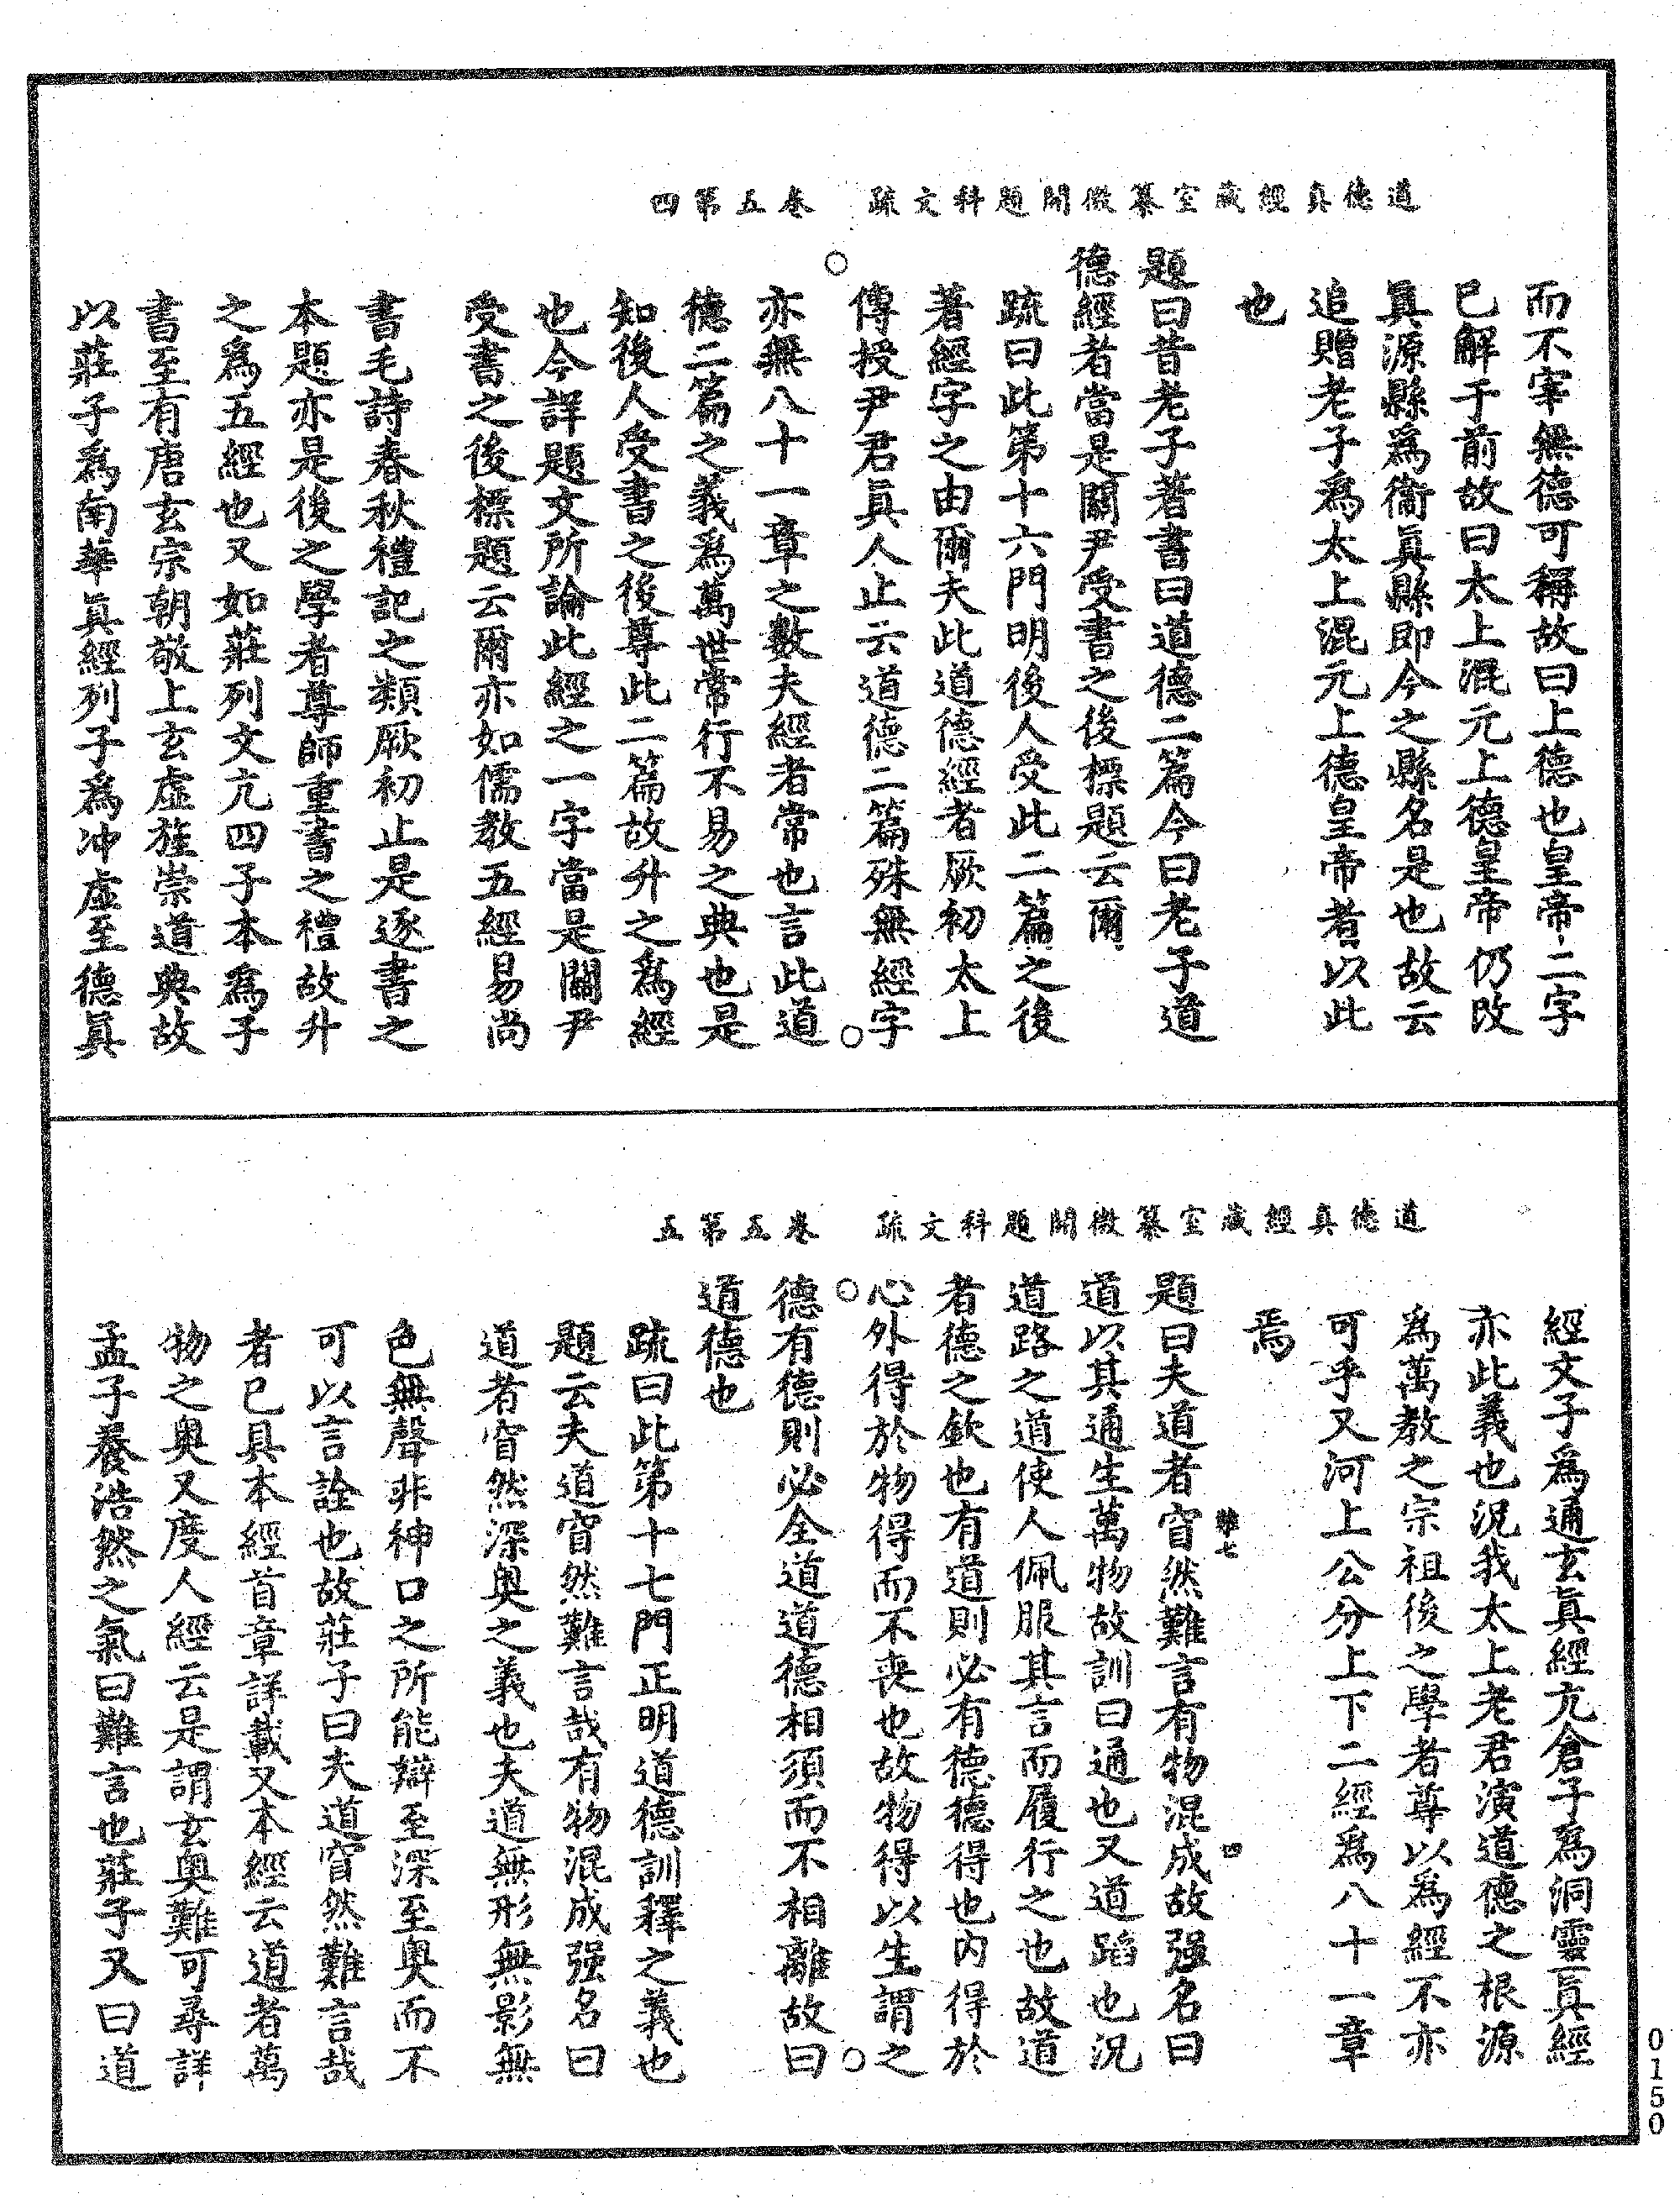 道德真經藏室纂微開題科文疏　卷五第四
而不宰無德可稱故曰上德也皇帝二字
已解于前故曰太上混元上德皇帝仍改
眞源縣爲衞眞縣即今之縣名是也故云
追贈老子爲太上混元上德皇帝者以此
也
題曰昔老子著書曰道德二篇今曰老子道
德經者當是關尹受書之後標題云爾
疏曰此第十六門明後人受此二篇之後
著經字之由爾夫此道德經者厥初太上
傳授尹君眞人止云道德二篇殊無經字
亦無八十一章之數夫經者常也言此道
德二篇之義爲萬世常行不易之典也是
知後人受書之後尊此二篇故升之爲經
也今詳題文所論此經之一字當是關尹
受書之後標題云爾亦如儒教五經易尚
書毛詩春秋禮記之類厥初止是逐書之
本題亦是後之學者尊師重書之禮故升
之爲五經也又如莊列文亢四子本爲子
書至有唐玄宗朝敬上玄虛旌崇道典故
以莊子爲南華眞經列子爲冲虛至德眞
道德真經藏室纂微開題科文疏　卷五第五
經文子爲通玄眞經亢倉子爲洞靈眞經
亦此義也況我太上老君演道德之根源
爲萬教之宗祖後之學者尊以爲經不亦
可乎又河上公分上下二經爲八十一章
焉
難七　四
題曰夫道者窅然難言有物混成故强名曰
道以其通生萬物故訓曰通也又道蹈也況
道路之道使人佩服其言而履行之也故道
者德之欽也有道則必有德德得也內得於
心外得於物得而不喪也故物得以生謂之
德有德則必全道道德相須而不相離故曰
道德也
疏曰此第十七門正明道德訓釋之義也
題云夫道窅然難言哉有物混成强名曰
道者窅然深奥之義也夫道無形無影無
色無聲非神口之所能辯至深至奥而不
可以言詮也故莊子曰夫道窅然難言哉
者已具本經首章詳載又本經云道者萬
物之奥又度人經云是謂玄奥難可尋詳
孟子養浩然之氣曰難言也莊子又曰道
0150